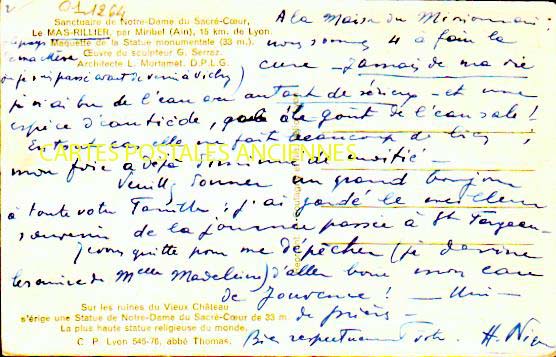 01264
Sanctuaire de Notre-Dame du Sacré-Cœur,
Le MAS-RILLIER, par Miribel (Ain), 15 km de Lyon.
Maquette de la Statue monumentale (33 m.)
Œuvre du sculpteur G. Serraz.
Architecte L. Mortamet. D.P.L.G.
A la Maison du Missionnaire :
nous sommes 4 à faire la
cure — jamais de ma vie
je n'ai bu de l'eau avec autant de sérieux — et une
espèce d', à le goût de l'eau sale !
En tout cas, elle me fait beaucoup de bien,
mon foie a déjà diminué de moitié —
CARTES POSTALES ANCIENNES
Veuillez donner un grand bonjour
à toute votre Famille ; j'ai gardé le meilleur
souvenir de la journée passée à St
Je vous quitte pour me dépêcher (je devine
le sourire de Melle Madeleine) d'aller boire mon eau
de Jouvence ! — Uni —
de prières —
Bien respectueusement vôtre. H.
Sur les ruines du Vieux Château
s'érige une Statue de Notre-Dame du Sacré-Cœur de 33 m.
La plus haute statue religieuse du monde.
C. P. Lyon 545-76, abbé Thomas.